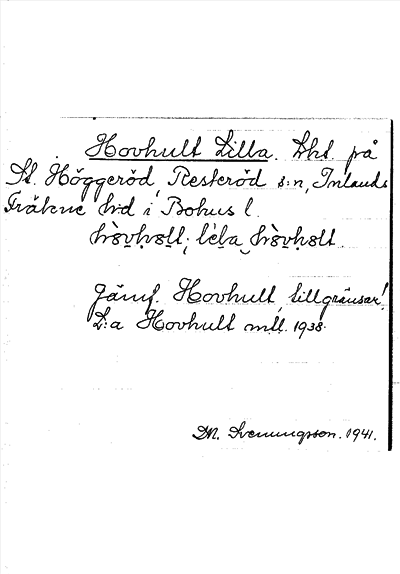 Hovhult Lilla. Lht. på
St. Höggeröd, Resteröd s:n, Inlands
Fräkne hd i Bohus l.
hòvhult; lela hòvhult.
Jämf. Hovhult, tillgränsar!
L:a Hovhult mtl. 1938.
M. Svenungsson. 1941.